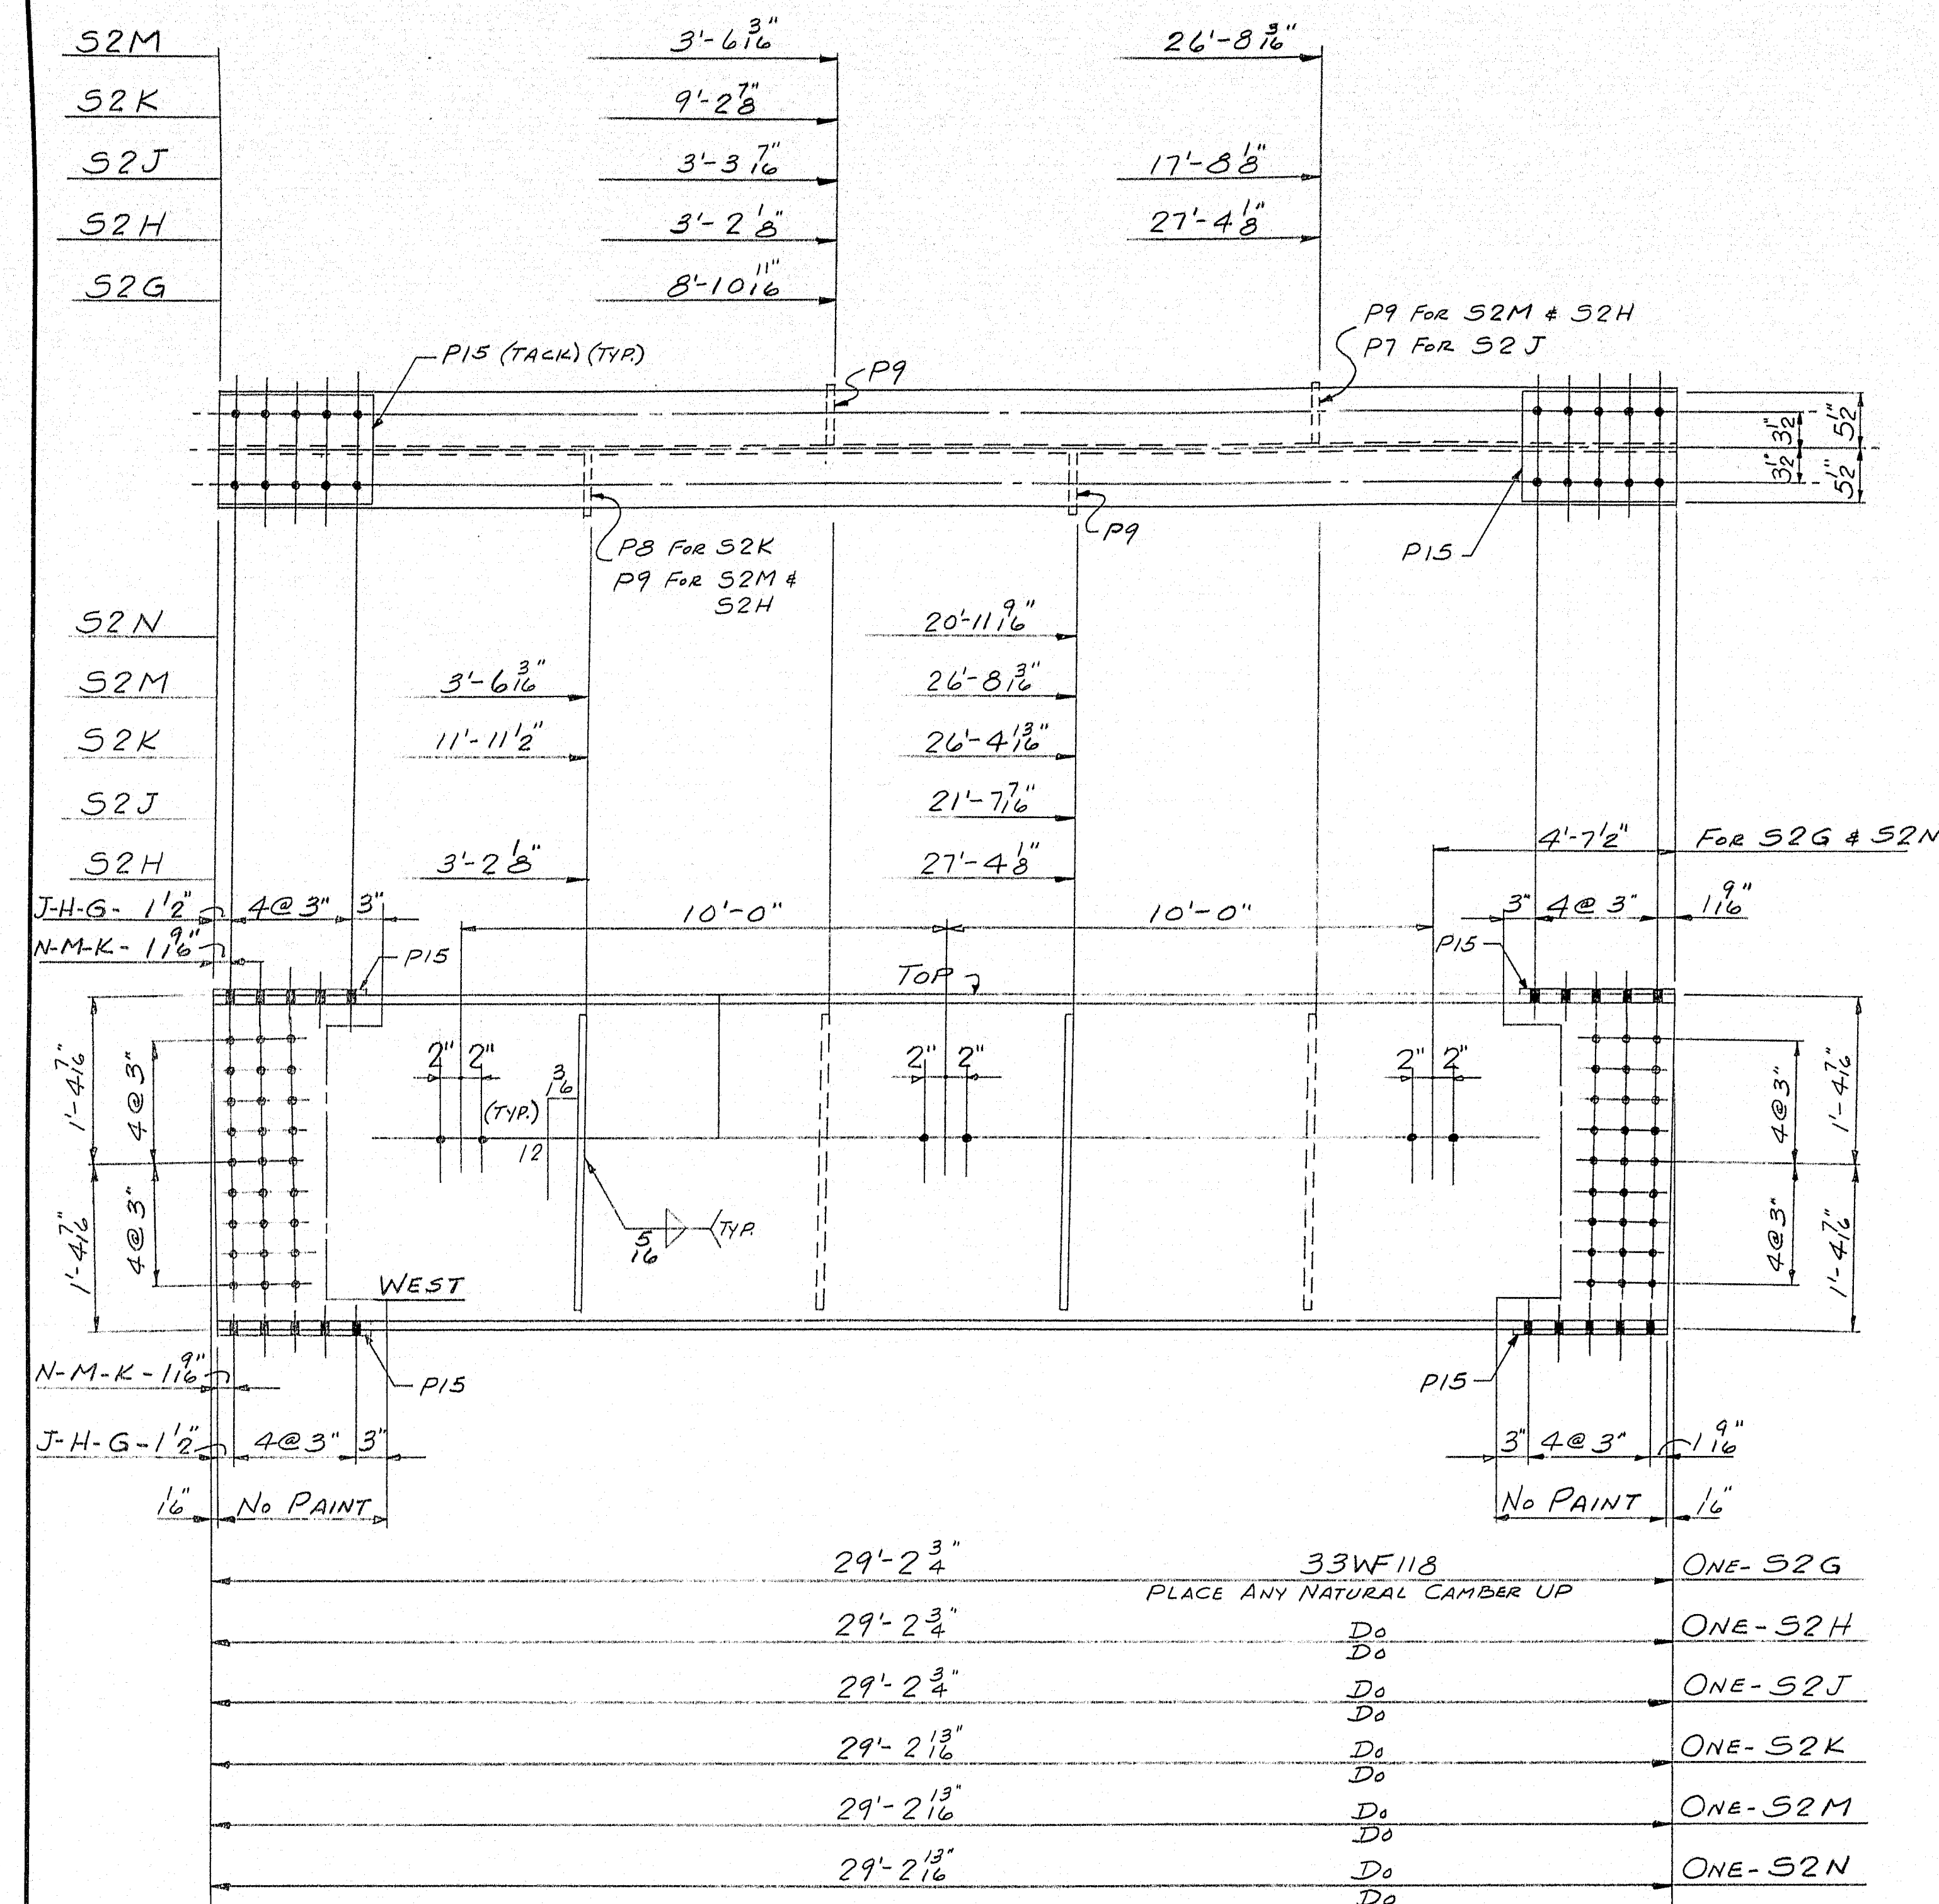 S2M 3'-6 3/16" 26'-8 3/16"
S2K 9'-2 7/8"
S2J 3'-3 7/16" 17'-8 1/8"
S2H 3'-2 1/8" 27'-4 1/8"
S2G 8'-10 11/16"
P9 FOR S2M & S2H
P7 FOR S2J
P15 (TACK) (TYP.)
P9
3 1/2" 5 1/2"
3 1/2" 5 1/2"
P8 FOR S2K
P9 FOR S2M &
S2H
P9
P15
S2N 20'-11 9/16"
S2M 3'-6 3/16" 26'-8 3/16"
S2K 11'-11 1/2" 26'-4 13/16"
S2J 21'-7 7/16"
S2H 3'-2 1/8" 27'-4 1/8"
4'-7 1/2" FOR S2G & S2N
J-H-G- 1 1/2" 4@3" 3" 10'-0" 10'-0" 3" 4@3" 1 9/16"
N-M-K- 1 9/16" P15 P15
TOP
1'-4 7/16" 4@3" 2" 2" 3/16 2" 2" 2" 2" 4@3" 1'-4 7/16"
(TYP.)
12
1'-4 7/16" 4@3" 5/16 TYP. 4@3" 1'-4 7/16"
WEST
N-M-K- 1 9/16" P15 P15
J-H-G- 1 1/2" 4@3" 3" 3" 4@3" 1 9/16"
1/16" NO PAINT NO PAINT 1/16"
29'-2 3/4" 33WF118 ONE- S2G
PLACE ANY NATURAL CAMBER UP
29'-2 3/4" DO ONE- S2H
DO
29'-2 3/4" DO ONE- S2J
DO
29'-2 13/16" DO ONE- S2K
DO
29'-2 13/16" DO ONE- S2M
DO
29'-2 13/16" DO ONE- S2N
DO